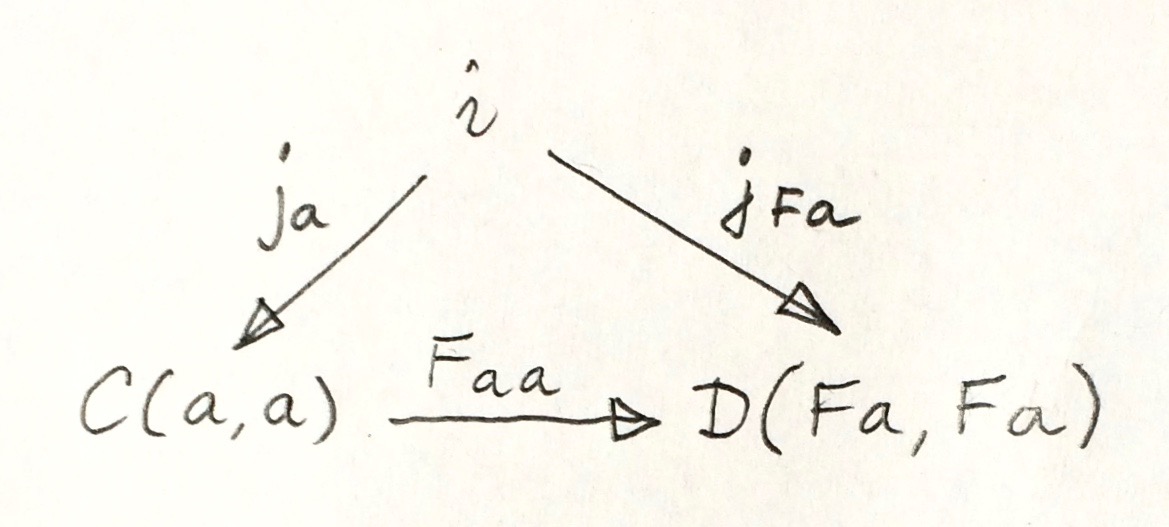 i
ja
jFa
Faa
C(a,a)
D(Fa, Fa)